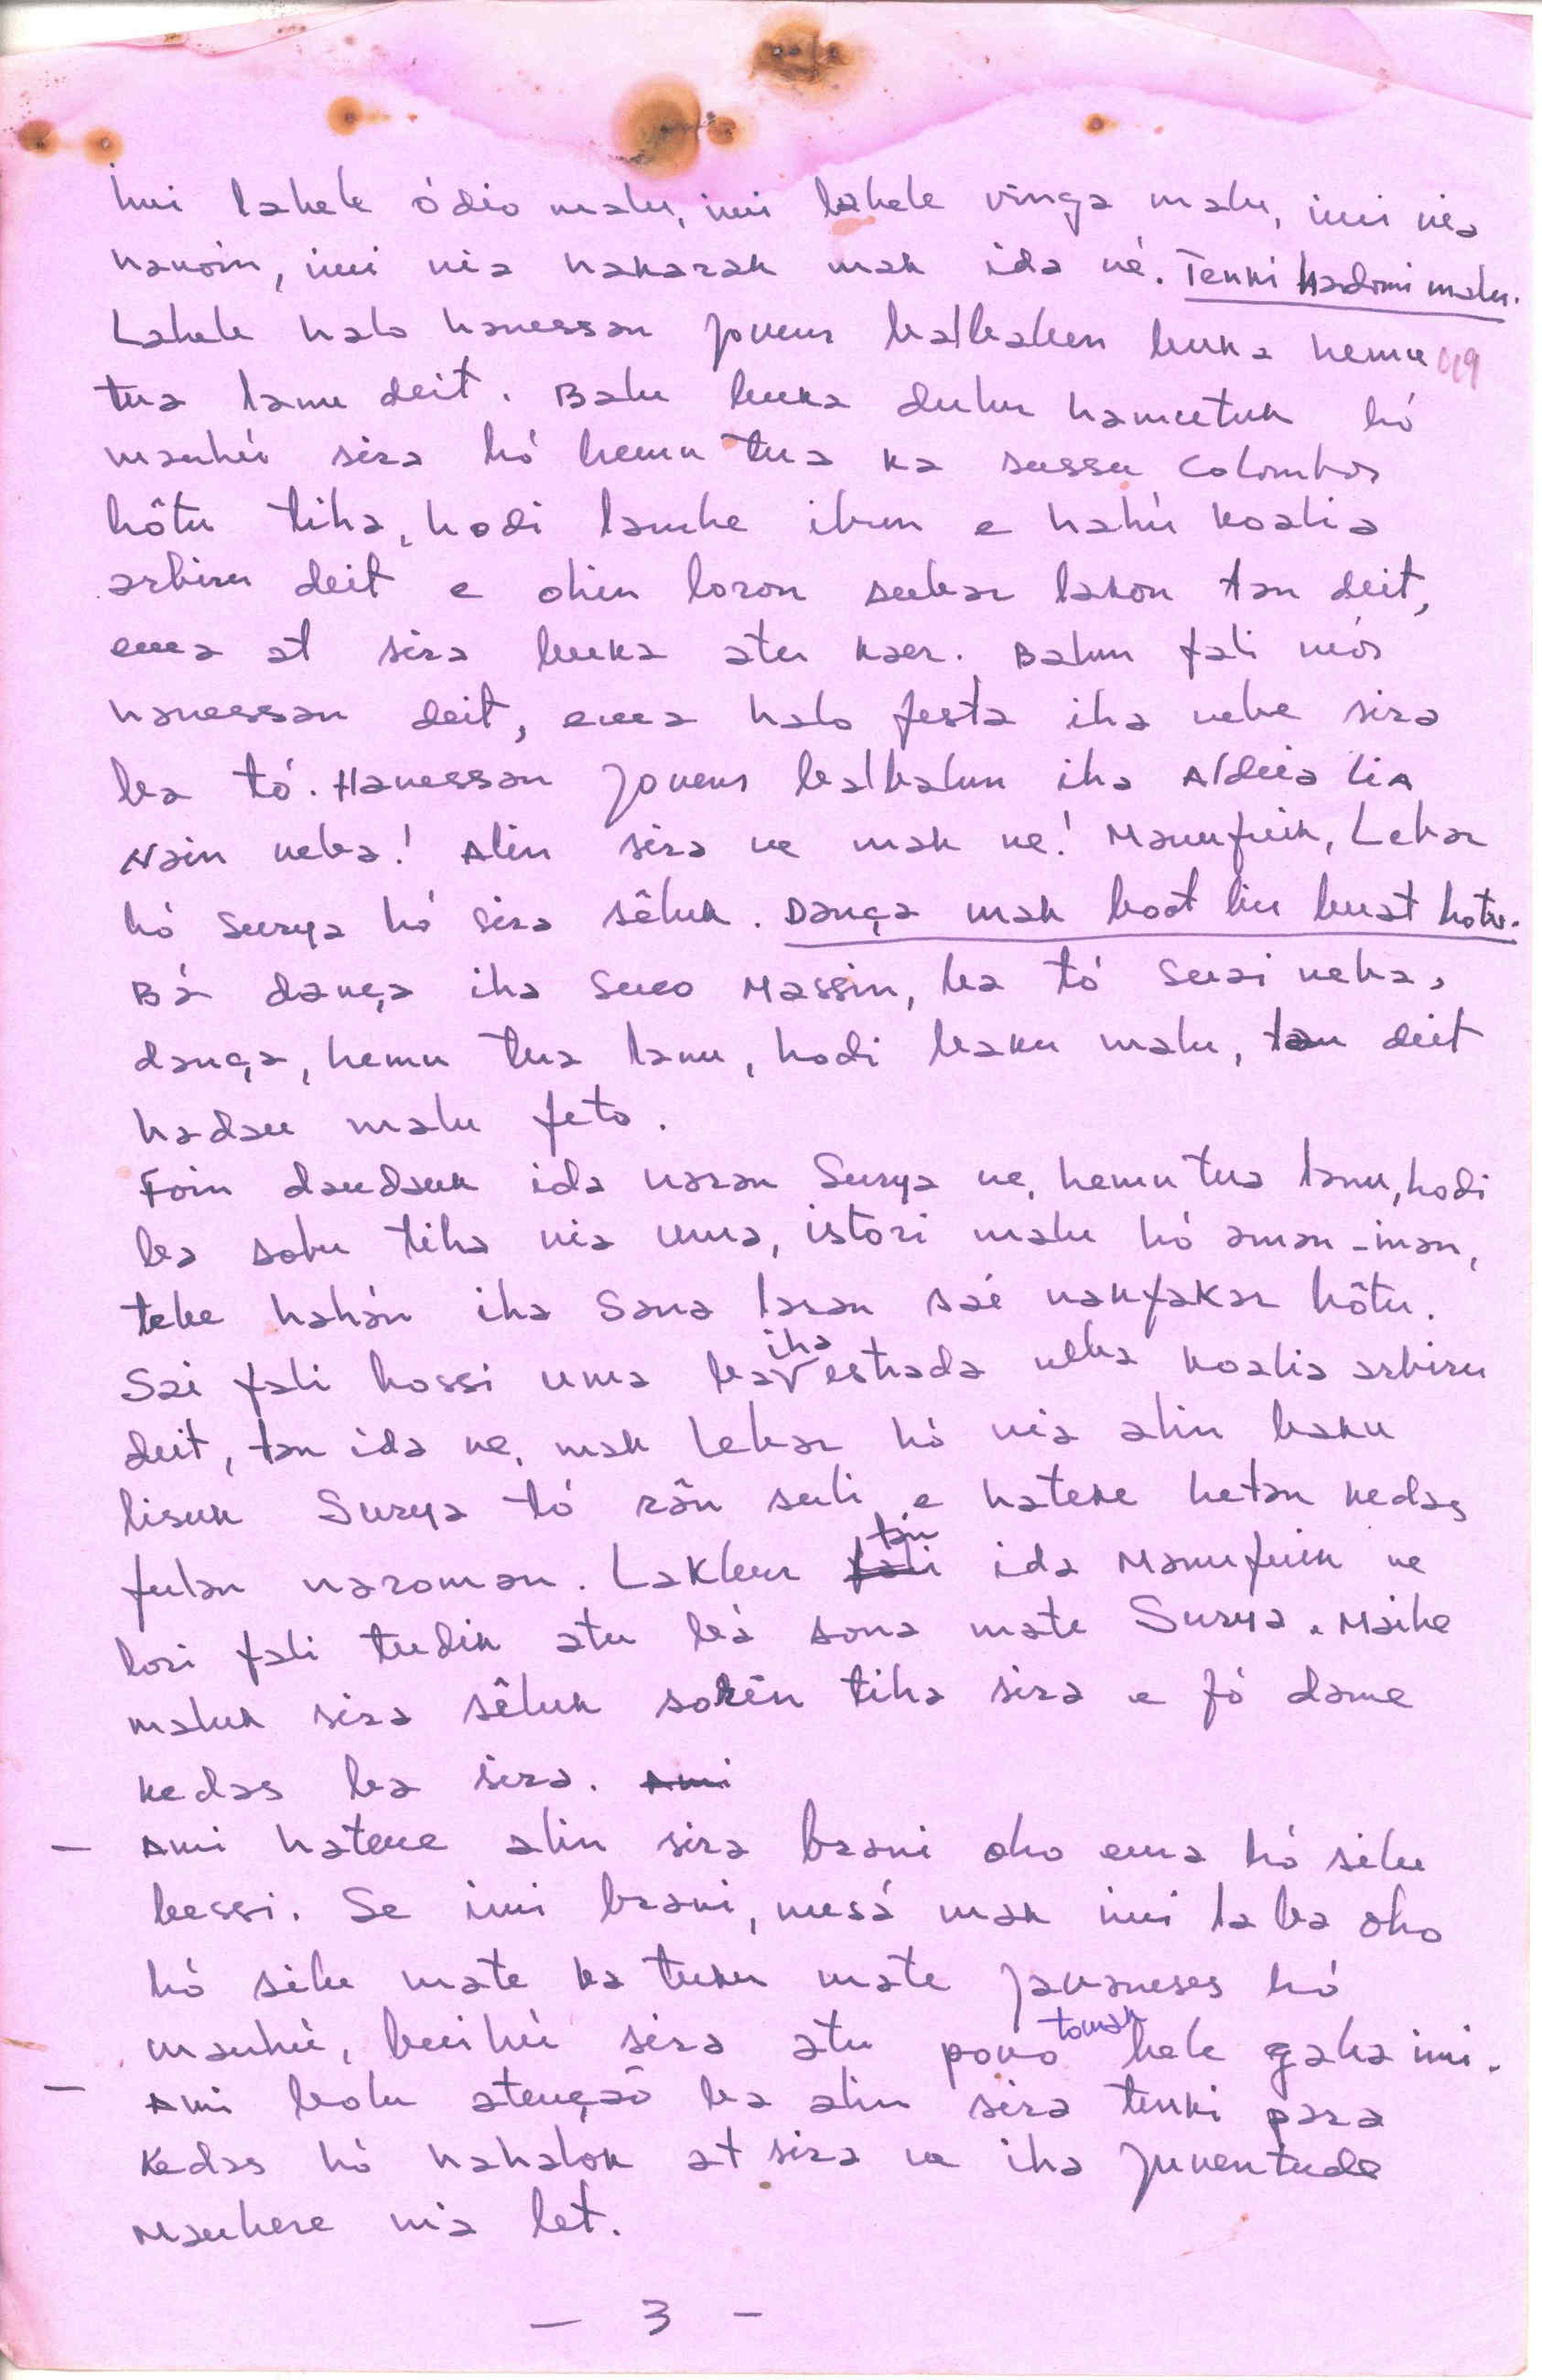 Imi labele ódio malu, imi labele vinga malu, imi nia
hanoin, imi nia hakarak mak ida né. Tenki hadomi malu.
Labele halo hanessan jovens balbalun buka hemu
tua lanu deit. Balu buka dulur hamutuk hó
mauhú sira hó hemu tua ka sussu Colombos
hôtu tiha, hodi lamhe ibun e hahú koalia
arbiru deit e ohin loron subar lakon tan deit,
ema at sira buka atu kaer. Balun fali mós
hanessan deit, ema halo festa iha nebe sira
ba tó. Hanessan jovens balbalun iha Aldeia Lia
Nain neba! Alin sira ne mak ne! Manufuik, Lebar
hó Surya hó sira sêluk. Dança mak boot liu buat hotu.
Bá dança iha Suco Massin, ba tó Suai neba,
dança, hemu tua lanu, hodi baku malu, tan deit
hadau malu feto.
Foin daudauk ida naran Surya ne, hemu tua lanu, hodi
ba sobu tiha nia uma, istori malu hó aman-inan,
tebe hahán iha Sana laran saé nakfakar hôtu.
Sai fali hossi uma ba iha estrada neba koalia arbiru
deit, tan ida ne, mak Lebar hó nia alin baku
lisuk Surya tó rân suli e hateke hetan kedas
fulan naroman. Lakleur fali tán ida Manufuik ne
lori fali tudik atu bá sona mate Surya. Maibe
maluk sira sêluk sokên tiha sira e fó dame
kedas ba sira. Ami
- Ami hatene alin sira brani oho ema hó silu
bessi. Se imi brani, nusá mak imi la ba oho
hó silu mate ka tuku mate javaneses hó
mauhú, buihú sira atu povo tomak bele gaba imi.
- Ami bolu atenção ba alin sira tenki para
kedas hó hahalok at sira ne iha juventude
Maubere nia let.
- 3 -